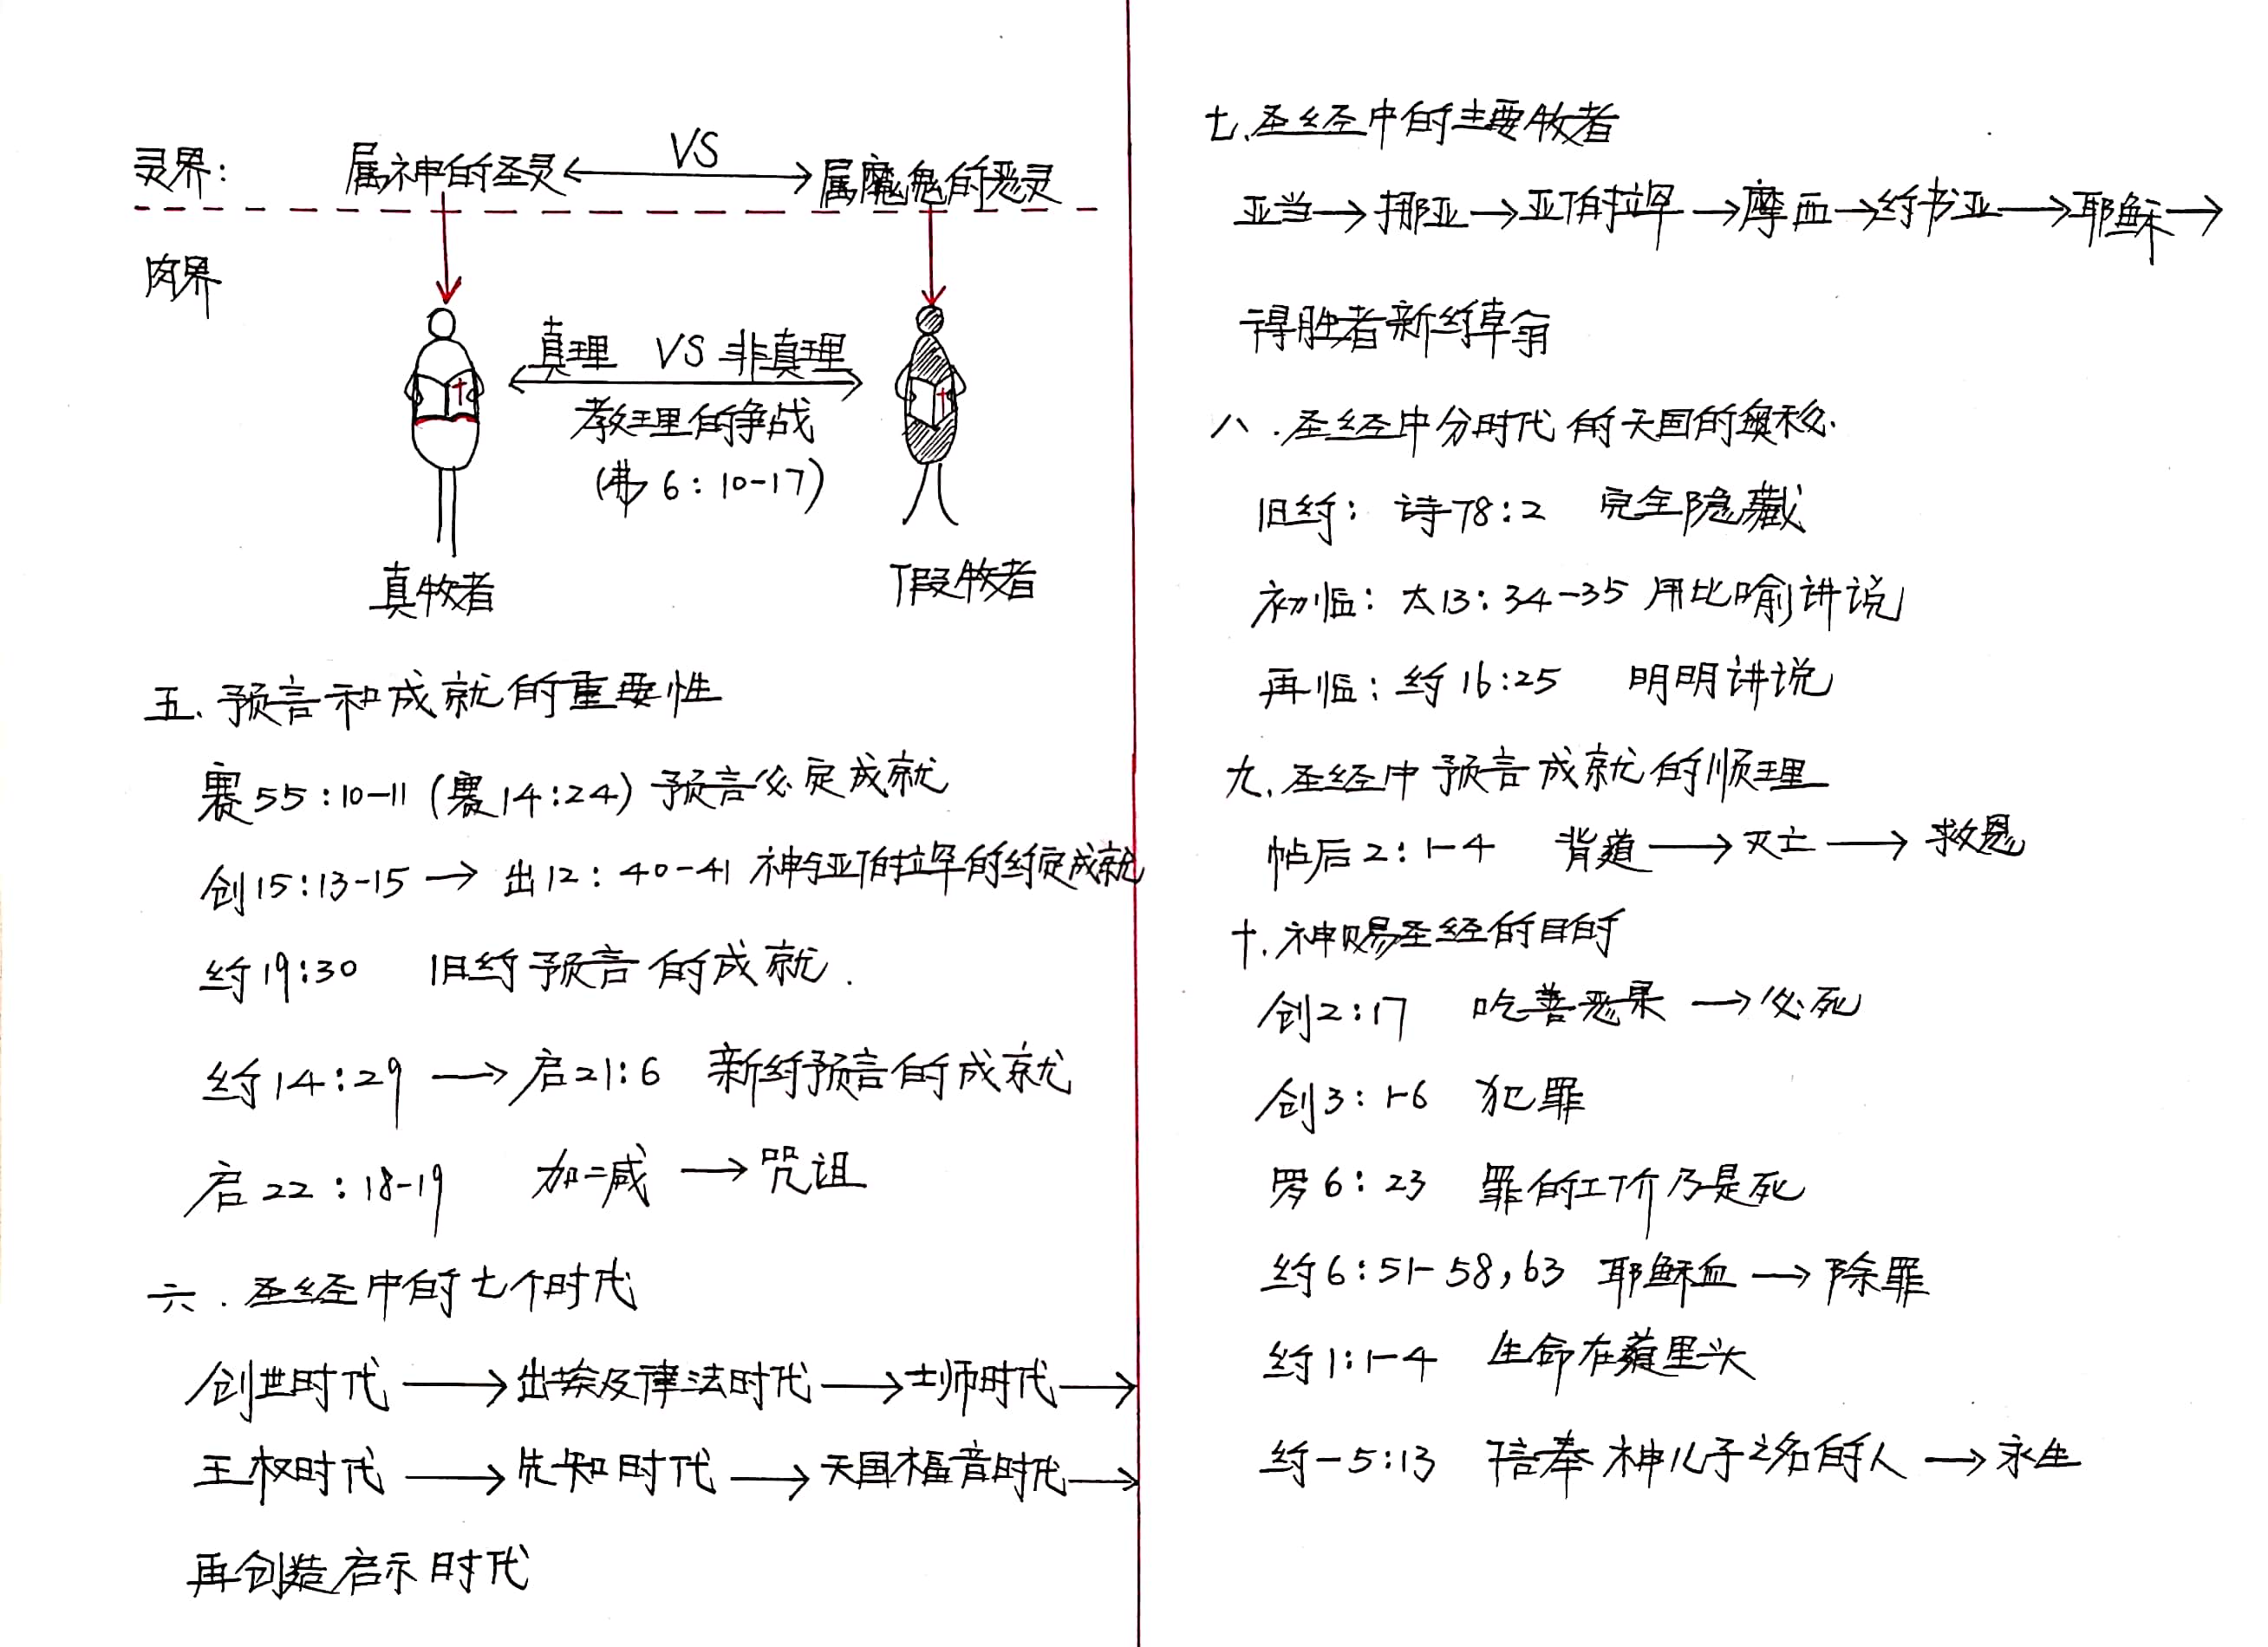 灵界: 属神的圣灵 VS 属魔鬼的恶灵
肉界
真理 VS 非真理
教理的争战
(弗6:10-17)
真牧者 假牧者
五、预言和成就的重要性
赛55:10-11 (赛14:24) 预言必定成就
创15:13-15 → 出12:40-41 神与亚伯拉罕的约定成就
约19:30 旧约预言的成就.
约14:29 → 启21:6 新约预言的成就
启22:18-19 加减 → 咒诅
六.圣经中的七个时代
创世时代 → 出埃及律法时代 → 士师时代 →
王权时代 → 先知时代 → 天国福音时代 →
再创造启示时代
七.圣经中的主要牧者
亚当 → 挪亚 → 亚伯拉罕 → 摩西 → 约书亚 → 耶稣 →
得胜者新约牧者
八.圣经中分时代的天国的奥秘.
旧约: 诗78:2 完全隐藏
初临: 太13:34-35 用比喻讲说
再临: 约16:25 明明讲说
九.圣经中预言成就的顺理
帖后2:1-4 背道 → 灭亡 → 救恩
十.神赐圣经的目的
创2:17 吃善恶果 → 必死
创3:1-6 犯罪
罗6:23 罪的工价乃是死
约6:51-58,63 耶稣血 → 除罪
约1:1-4 生命在道里头
约一5:13 信奉神儿子之名的人 → 永生